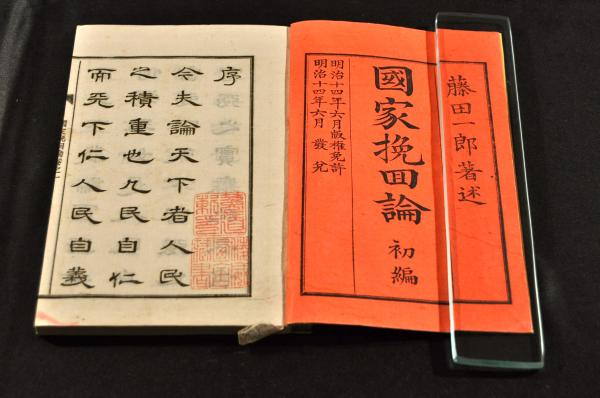 藤田一郎著述
國家挽回論 初編
明治十四年六月版権免許
明治十四年六月 發兌
序
今夫論天下者人民
之積重也凡民自仁
而天下仁人民自義